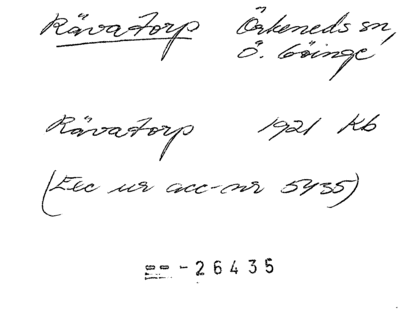 Rävatorp Örkeneds sn,
Ö. Göinge
Rävatorp 1921 Kb
(Exc ur acc-nr 5435)
== - 26435